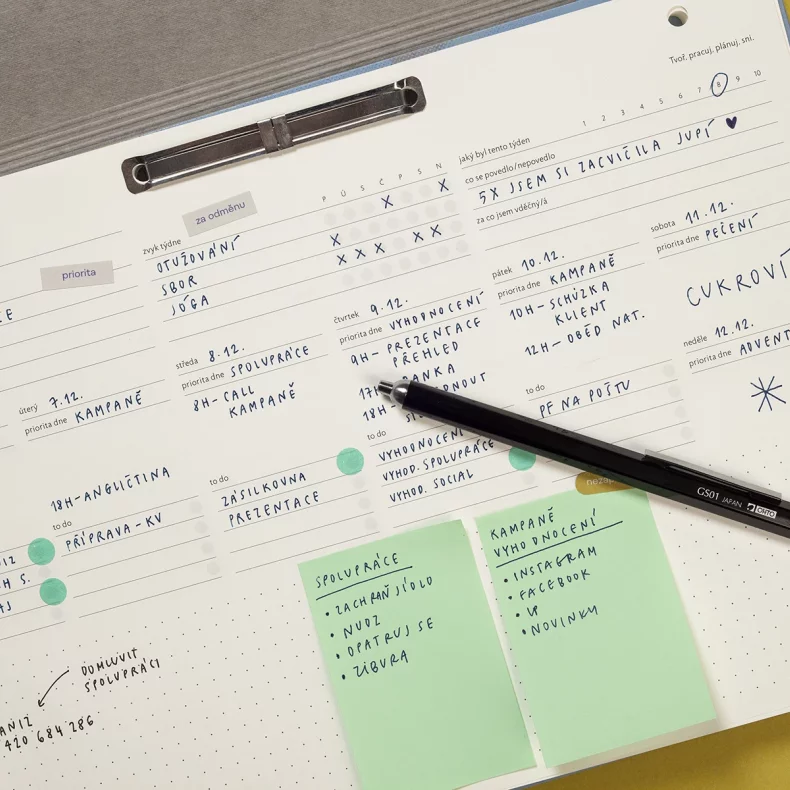 Tvoř, pracuj, plánuj, sni.
jaký byl tento týden
1 2 3 4 5 6 7 8 9 10
co se povedlo/nepovedlo
5X JSEM SI ZACVIČILA JUPÍ ♥
za co jsem vděčný/á
priorita
zvyk týdne
za odměnu
P Ú S Č P S N
OTUŽOVÁNÍ X X
SBOR X
JÓGA X X X X X
úterý 7.12.
priorita dne KAMPANĚ
18H - ANGLIČTINA
to do
PŘÍPRAVA - KV
středa 8.12.
priorita dne SPOLUPRÁCE
8H - CALL
KAMPANĚ
to do
ZÁSILKOVNA
PREZENTACE
čtvrtek 9.12.
priorita dne VYHODNOCENÍ
9H - PREZENTACE
PŘEHLED
17H
BANKA
18H -
to do
VYHODNOCENÍ
VYHOD. SPOLUPRÁCE
VYHOD. SOCIAL
pátek 10.12.
priorita dne KAMPANĚ
10H - SCHŮZKA
KLIENT
12H - OBĚD NAT.
to do
PF NA POŠTU
sobota 11.12.
priorita dne PEČENÍ
CUKROVÍ
neděle 12.12.
priorita dne ADVENT
GS01 JAPAN OHTO
SPOLUPRÁCE
• ZACHRAŇ JÍDLO
• NUDZ
• OPATRUJ SE
• ZIBURA
KAMPANĚ
VYHODNOCENÍ
• INSTAGRAM
• FACEBOOK
• VP
• NOVINKY
DOMLUVIT
SPOLUPRÁCI
420 684 286